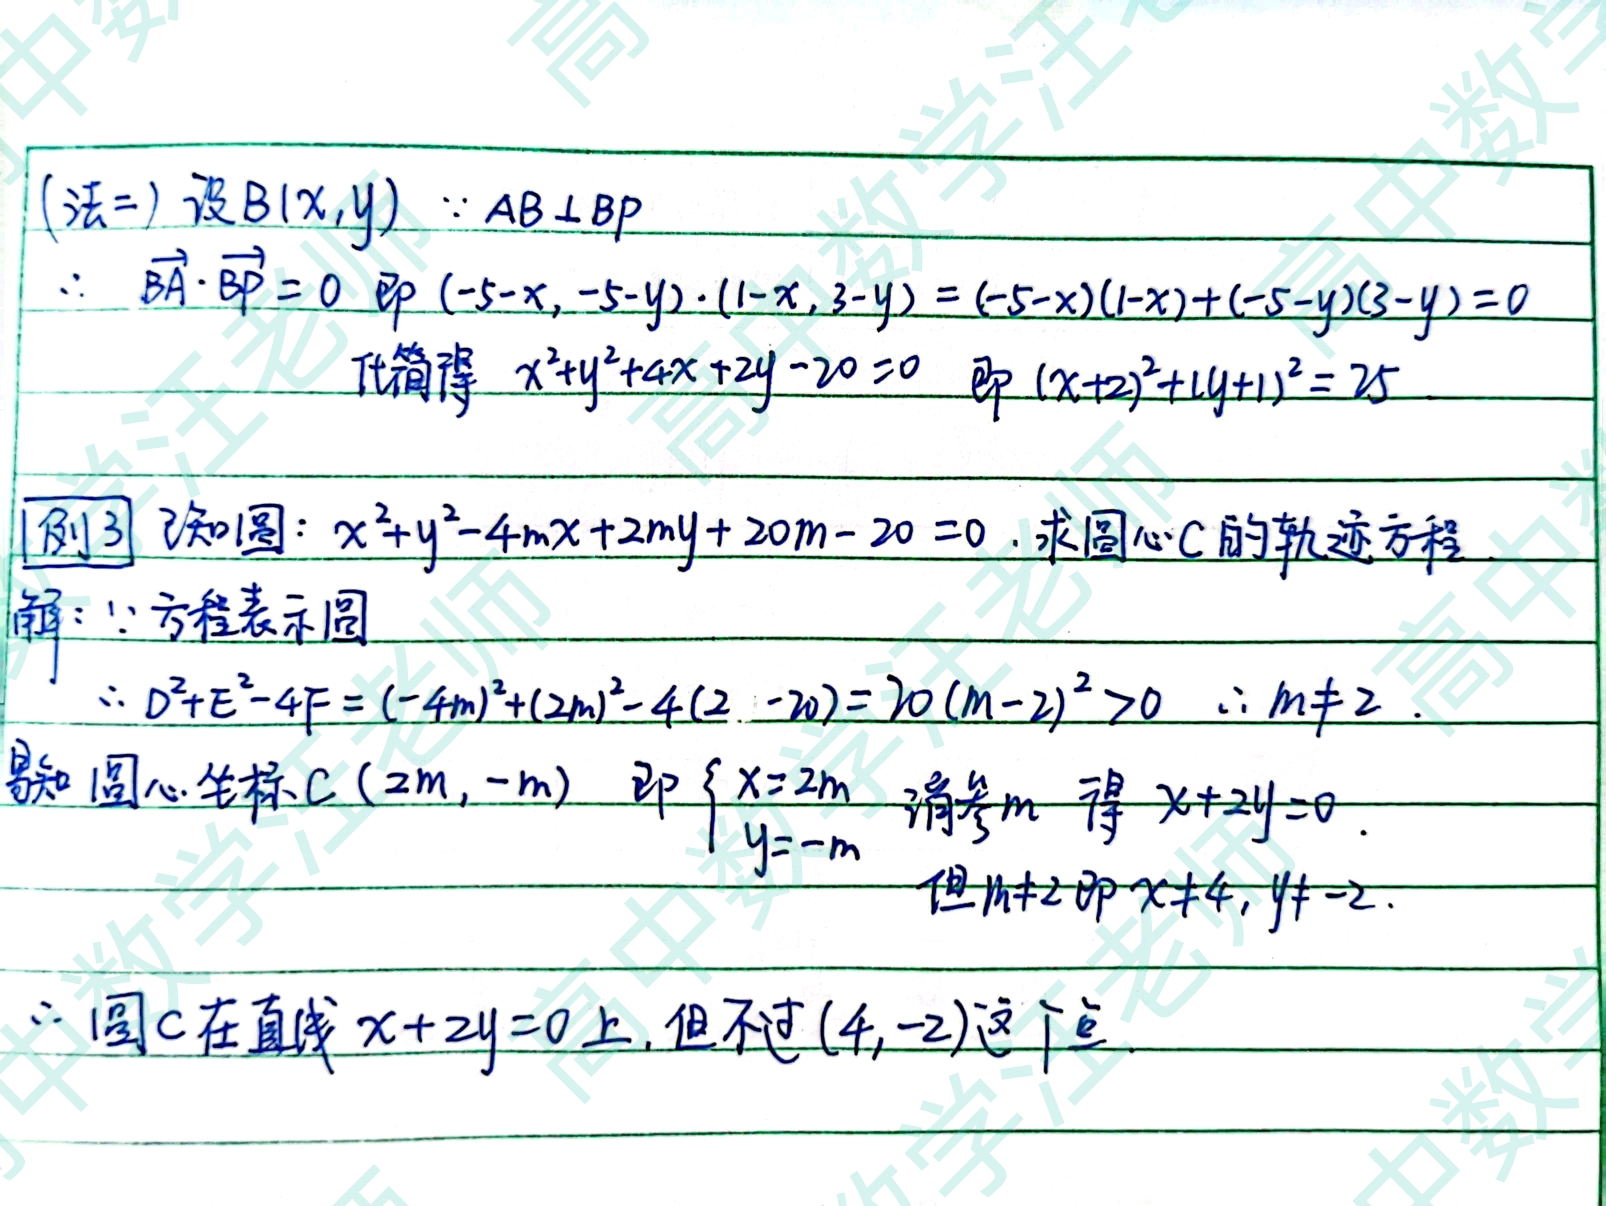 (法二) 设B(x,y) ∵ AB⊥BP
∴ BA→·BP→=0 即 (-5-x,-5-y)·(1-x,3-y)=(-5-x)(1-x)+(-5-y)(3-y)=0
化简得 x²+y²+4x+2y-20=0 即 (x+2)²+(y+1)²=25
例3 已知圆: x²+y²-4mx+2my+20m-20=0.求圆心C的轨迹方程.
解:∵方程表示圆
∴D²+E²-4F=(-4m)²+(2m)²-4(2 -20)=20(m-2)²>0 ∴m≠2.
易知圆心坐标C(2m,-m) 即{x=2m 消参m 得 x+2y=0.
y=-m
但m≠2即x≠4,y≠-2.
∴圆C在直线x+2y=0上.但不过(4,-2)这个点.
高中数学汪老师